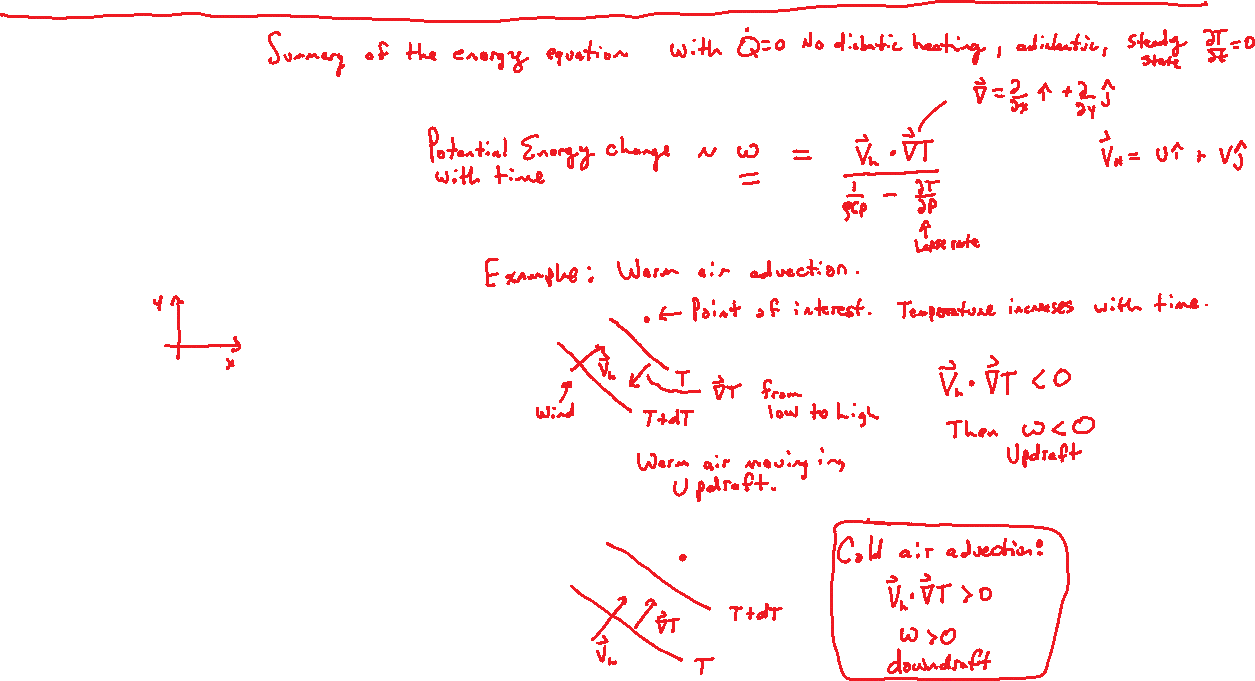 Summary of the energy equation with Q̇=0 No diabatic heating, adiabatic, steady state ∂T/∂t=0
∇⃗ = ∂/∂x î + ∂/∂y ĵ
Potential Energy change with time ~ ω = V⃗ₕ·∇⃗T / (1/ρCp − ∂T/∂p)
V⃗_H = Uî + Vĵ
Lapse rate
Example: Warm air advection.
y
x
← Point of interest. Temperature increases with time.
V⃗ₕ
T
Wind
T+dT
∇⃗T from low to high
V⃗ₕ·∇⃗T < 0
Then ω<0
Updraft
Warm air moving in,
Updraft.
Cold air advection:
V⃗ₕ·∇⃗T > 0
ω>0
downdraft
T+dT
∇⃗T
V⃗ₕ
T